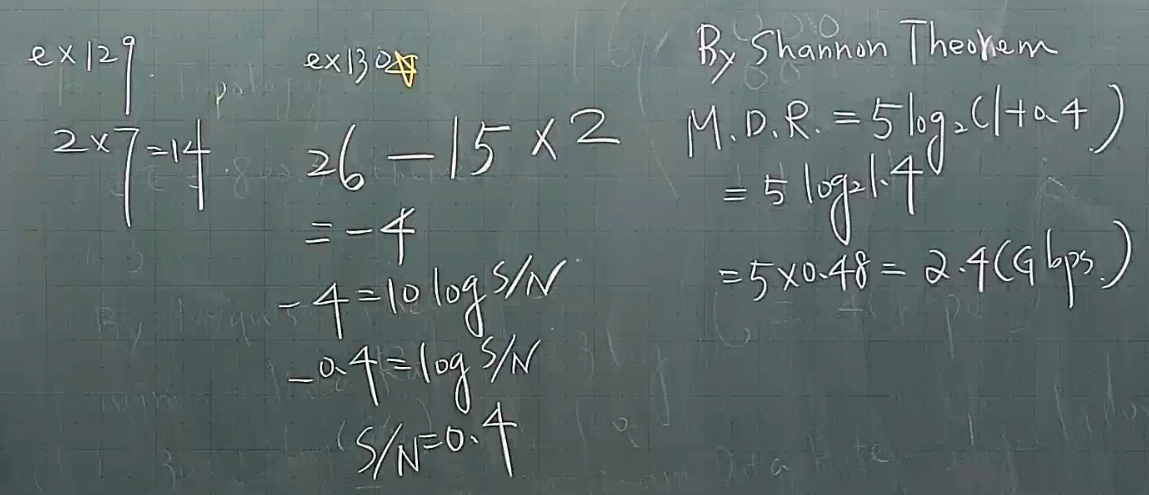 ex129
2×7=14
ex130
26-15×2
=-4
-4=10 log S/N
-0.4=log S/N
S/N=0.4
By Shannon Theorem
M.D.R.=5log₂(1+0.4)
=5 log₂1.4
=5×0.48=2.4(Gbps.)